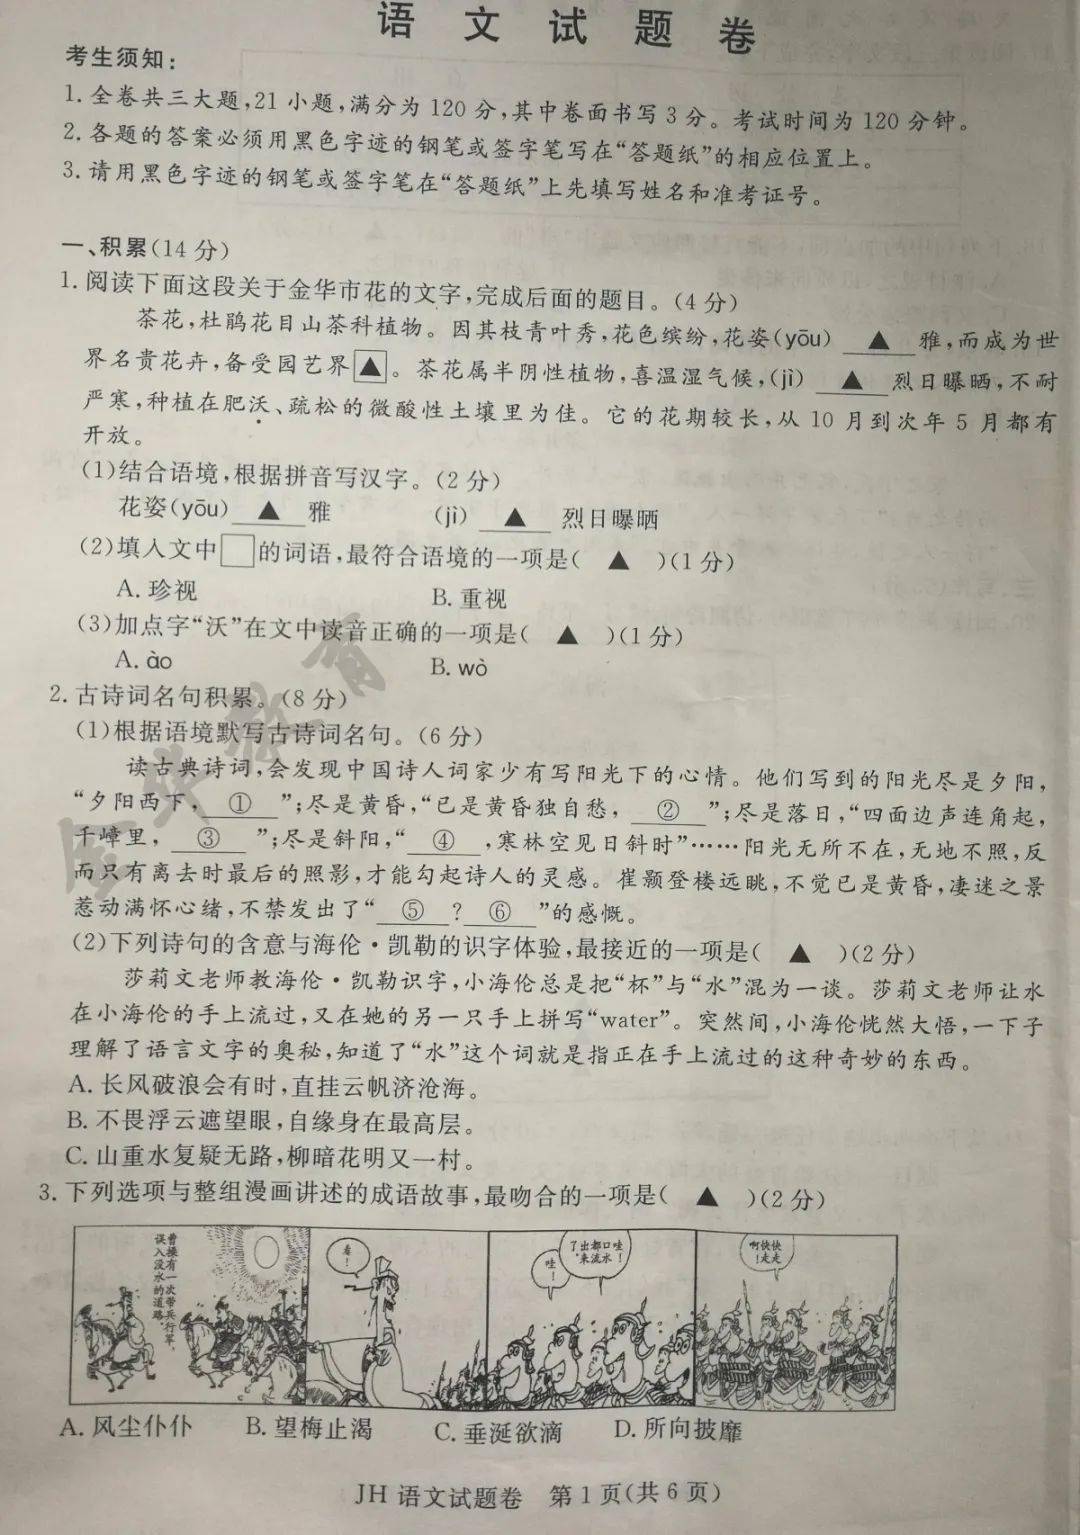 语文试题卷
考生须知:
1.全卷共三大题,21小题,满分为120分,其中卷面书写3分。考试时间为120分钟。
2.各题的答案必须用黑色字迹的钢笔或签字笔写在“答题纸”的相应位置上。
3.请用黑色字迹的钢笔或签字笔在“答题纸”上先填写姓名和准考证号。
一、积累(14分)
1.阅读下面这段关于金华市花的文字,完成后面的题目。(4分)
茶花,杜鹃花目山茶科植物。因其枝青叶秀,花色缤纷,花姿(yōu) ▲ 雅,而成为世
界名贵花卉,备受园艺界▲。茶花属半阴性植物,喜温湿气候,(jì) ▲ 烈日曝晒,不耐
严寒,种植在肥沃、疏松的微酸性土壤里为佳。它的花期较长,从10月到次年5月都有
开放。
(1)结合语境,根据拼音写汉字。(2分)
花姿(yōu) ▲ 雅 (jì) ▲ 烈日曝晒
(2)填入文中□的词语,最符合语境的一项是( ▲ )(1分)
A.珍视 B.重视
(3)加点字“沃”在文中读音正确的一项是( ▲ )(1分)
A.ào B.wò
2.古诗词名句积累。(8分)
(1)根据语境默写古诗词名句。(6分)
读古典诗词,会发现中国诗人词家少有写阳光下的心情。他们写到的阳光尽是夕阳,
“夕阳西下, ① ”;尽是黄昏,“已是黄昏独自愁, ② ”;尽是落日,“四面边声连角起,
千嶂里, ③ ”;尽是斜阳,“ ④ ,寒林空见日斜时”……阳光无所不在,无地不照,反
而只有离去时最后的照影,才能勾起诗人的灵感。崔颢登楼远眺,不觉已是黄昏,凄迷之景
惹动满怀心绪,不禁发出了“ ⑤ ? ⑥ ”的感慨。
(2)下列诗句的含意与海伦·凯勒的识字体验,最接近的一项是( ▲ )(2分)
莎莉文老师教海伦·凯勒识字,小海伦总是把“杯”与“水”混为一谈。莎莉文老师让水
在小海伦的手上流过,又在她的另一只手上拼写“water”。突然间,小海伦恍然大悟,一下子
理解了语言文字的奥秘,知道了“水”这个词就是指正在手上流过的这种奇妙的东西。
A.长风破浪会有时,直挂云帆济沧海。
B.不畏浮云遮望眼,自缘身在最高层。
C.山重水复疑无路,柳暗花明又一村。
3.下列选项与整组漫画讲述的成语故事,最吻合的一项是( ▲ )(2分)
曹操有一次带兵行军,
误入没水的道路。
看!
哇!
哇!口水都流出来了
快走!快走啊
A.风尘仆仆 B.望梅止渴 C.垂涎欲滴 D.所向披靡
JH语文试题卷 第1页(共6页)